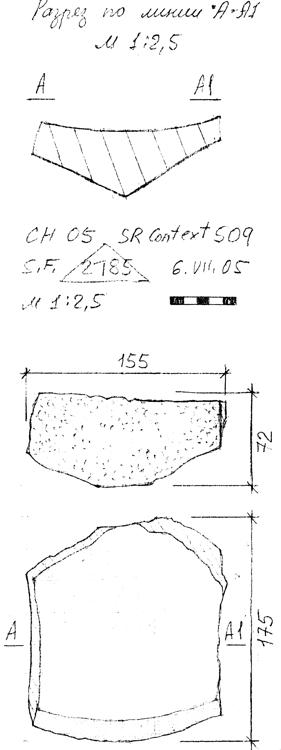 Разрез по линии "А-А1
М 1:2,5
А А1
CH 05 SR Context 509
S.F. 2785 6.VII.05
М 1:2,5
155
72
А А1
175